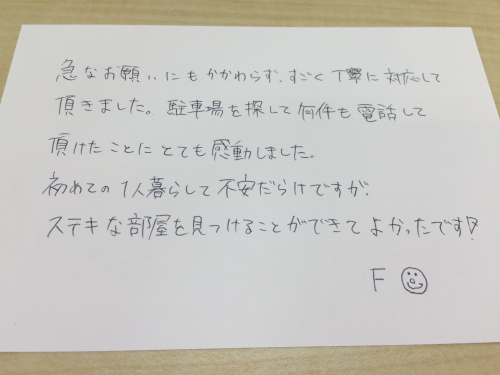 急なお願いにもかかわらず、すごく丁寧に対応して
頂きました。駐車場を探して何件も電話して
頂けたことにとても感動しました。
初めての1人暮らしで不安だらけですが、
ステキな部屋を見つけることができてよかったです!
F